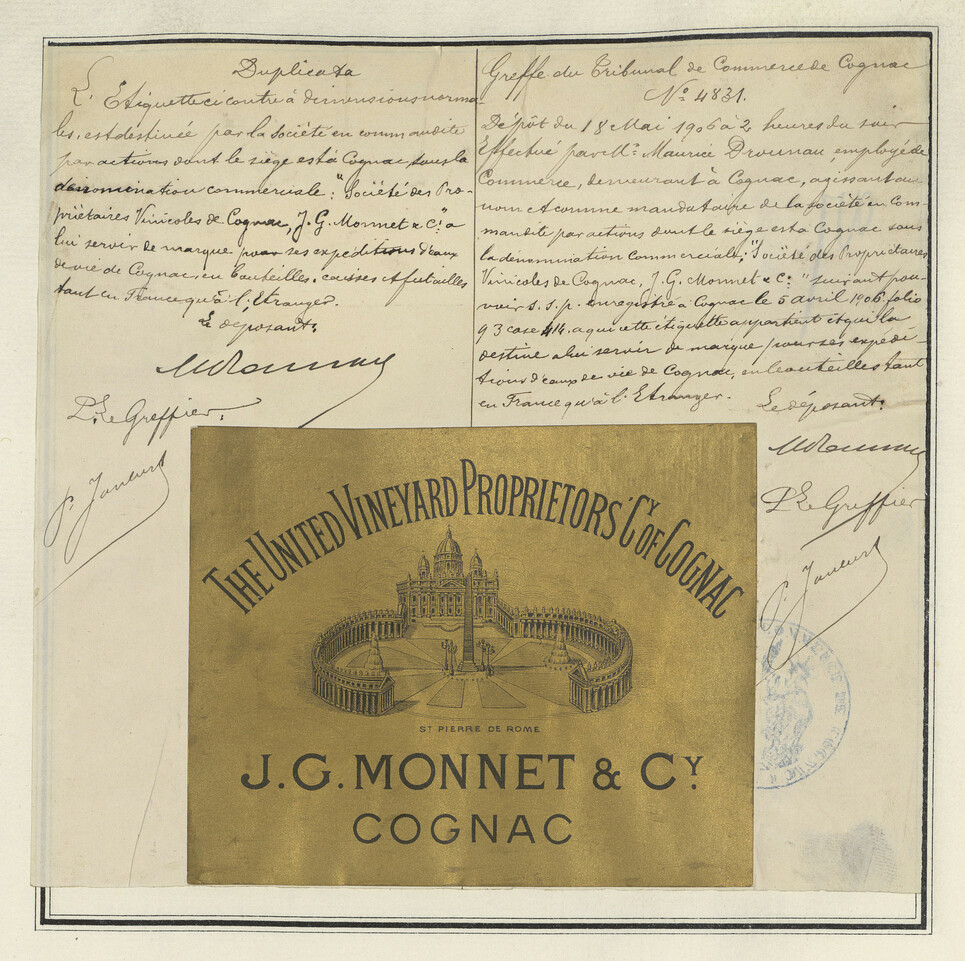 Duplicata
L'Etiquette ci contre à dimensions norma-
les, est destinée par la Société en commandite
par actions dont le siège est à Cognac, sous la
dénomination commerciale: "Société des Pro-
priétaires Vinicoles de Cognac, J. G. Monnet & Cie" à
lui servir de marque pour ses expéditions d'eaux
de vie de Cognac, en bouteilles, caisses et futailles
tant en France qu'à l'Etranger.
Le déposant:
P. Le Greffier.
Greffe du Tribunal de Commerce de Cognac
No 4831.
Dépôt du 18 Mai 1906 à 2 heures du soir
Effectué par Mr. Maurice Drounau, employé de
Commerce, demeurant à Cognac, agissant au
nom et comme mandataire de la société en com-
mandite par actions dont le siège est à Cognac sous
la dénomination commerciale; "Société des Propriétaires
Vinicoles de Cognac, J. G. Monnet & Cie" suivant pou-
voir s.s.p. enregistré à Cognac le 5 avril 1906 folio
93 case 414. à qui cette étiquette appartient et qui la
destine à lui servir de marque pour ses expédi-
tions d'eaux de vie de Cognac, en bouteilles tant
en France qu'à l'Etranger.
Le déposant:
P. Le Greffier
THE UNITED VINEYARD PROPRIETORS' CY OF COGNAC
ST PIERRE DE ROME
J.G. MONNET & CY.
COGNAC